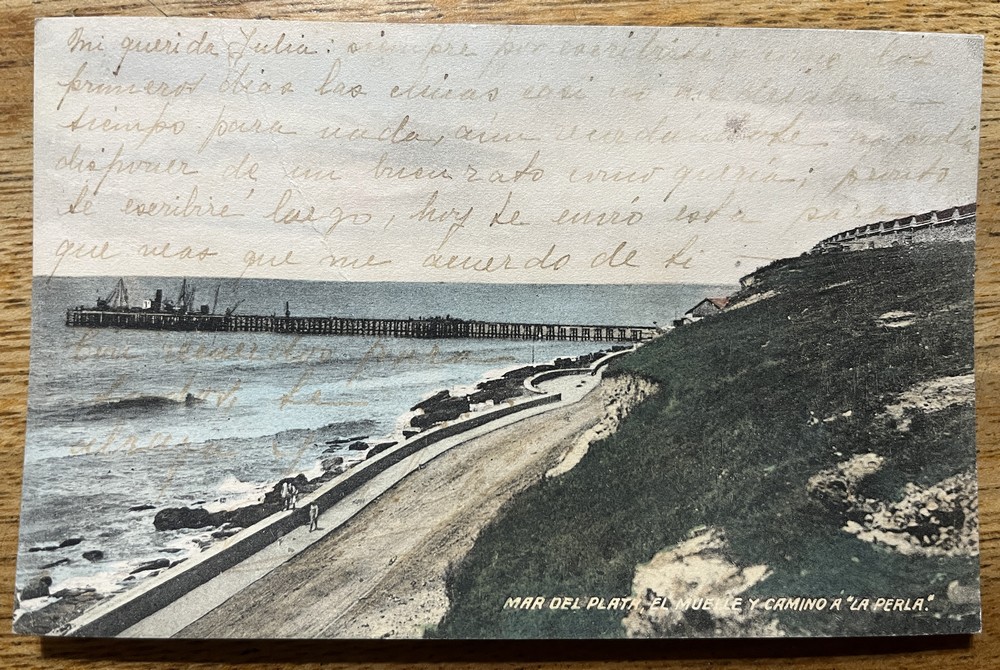 Mi querida Julia: siempre por escribirte, como los
primeros días las chicas casi no me dejaban
tiempo para nada, aún recordándote no podía
disponer de un buen rato como quería; pronto
te escribiré largo, hoy te envío esta para
que veas que me acuerdo de ti
para
todos te
MAR DEL PLATA, EL MUELLE Y CAMINO A "LA PERLA."